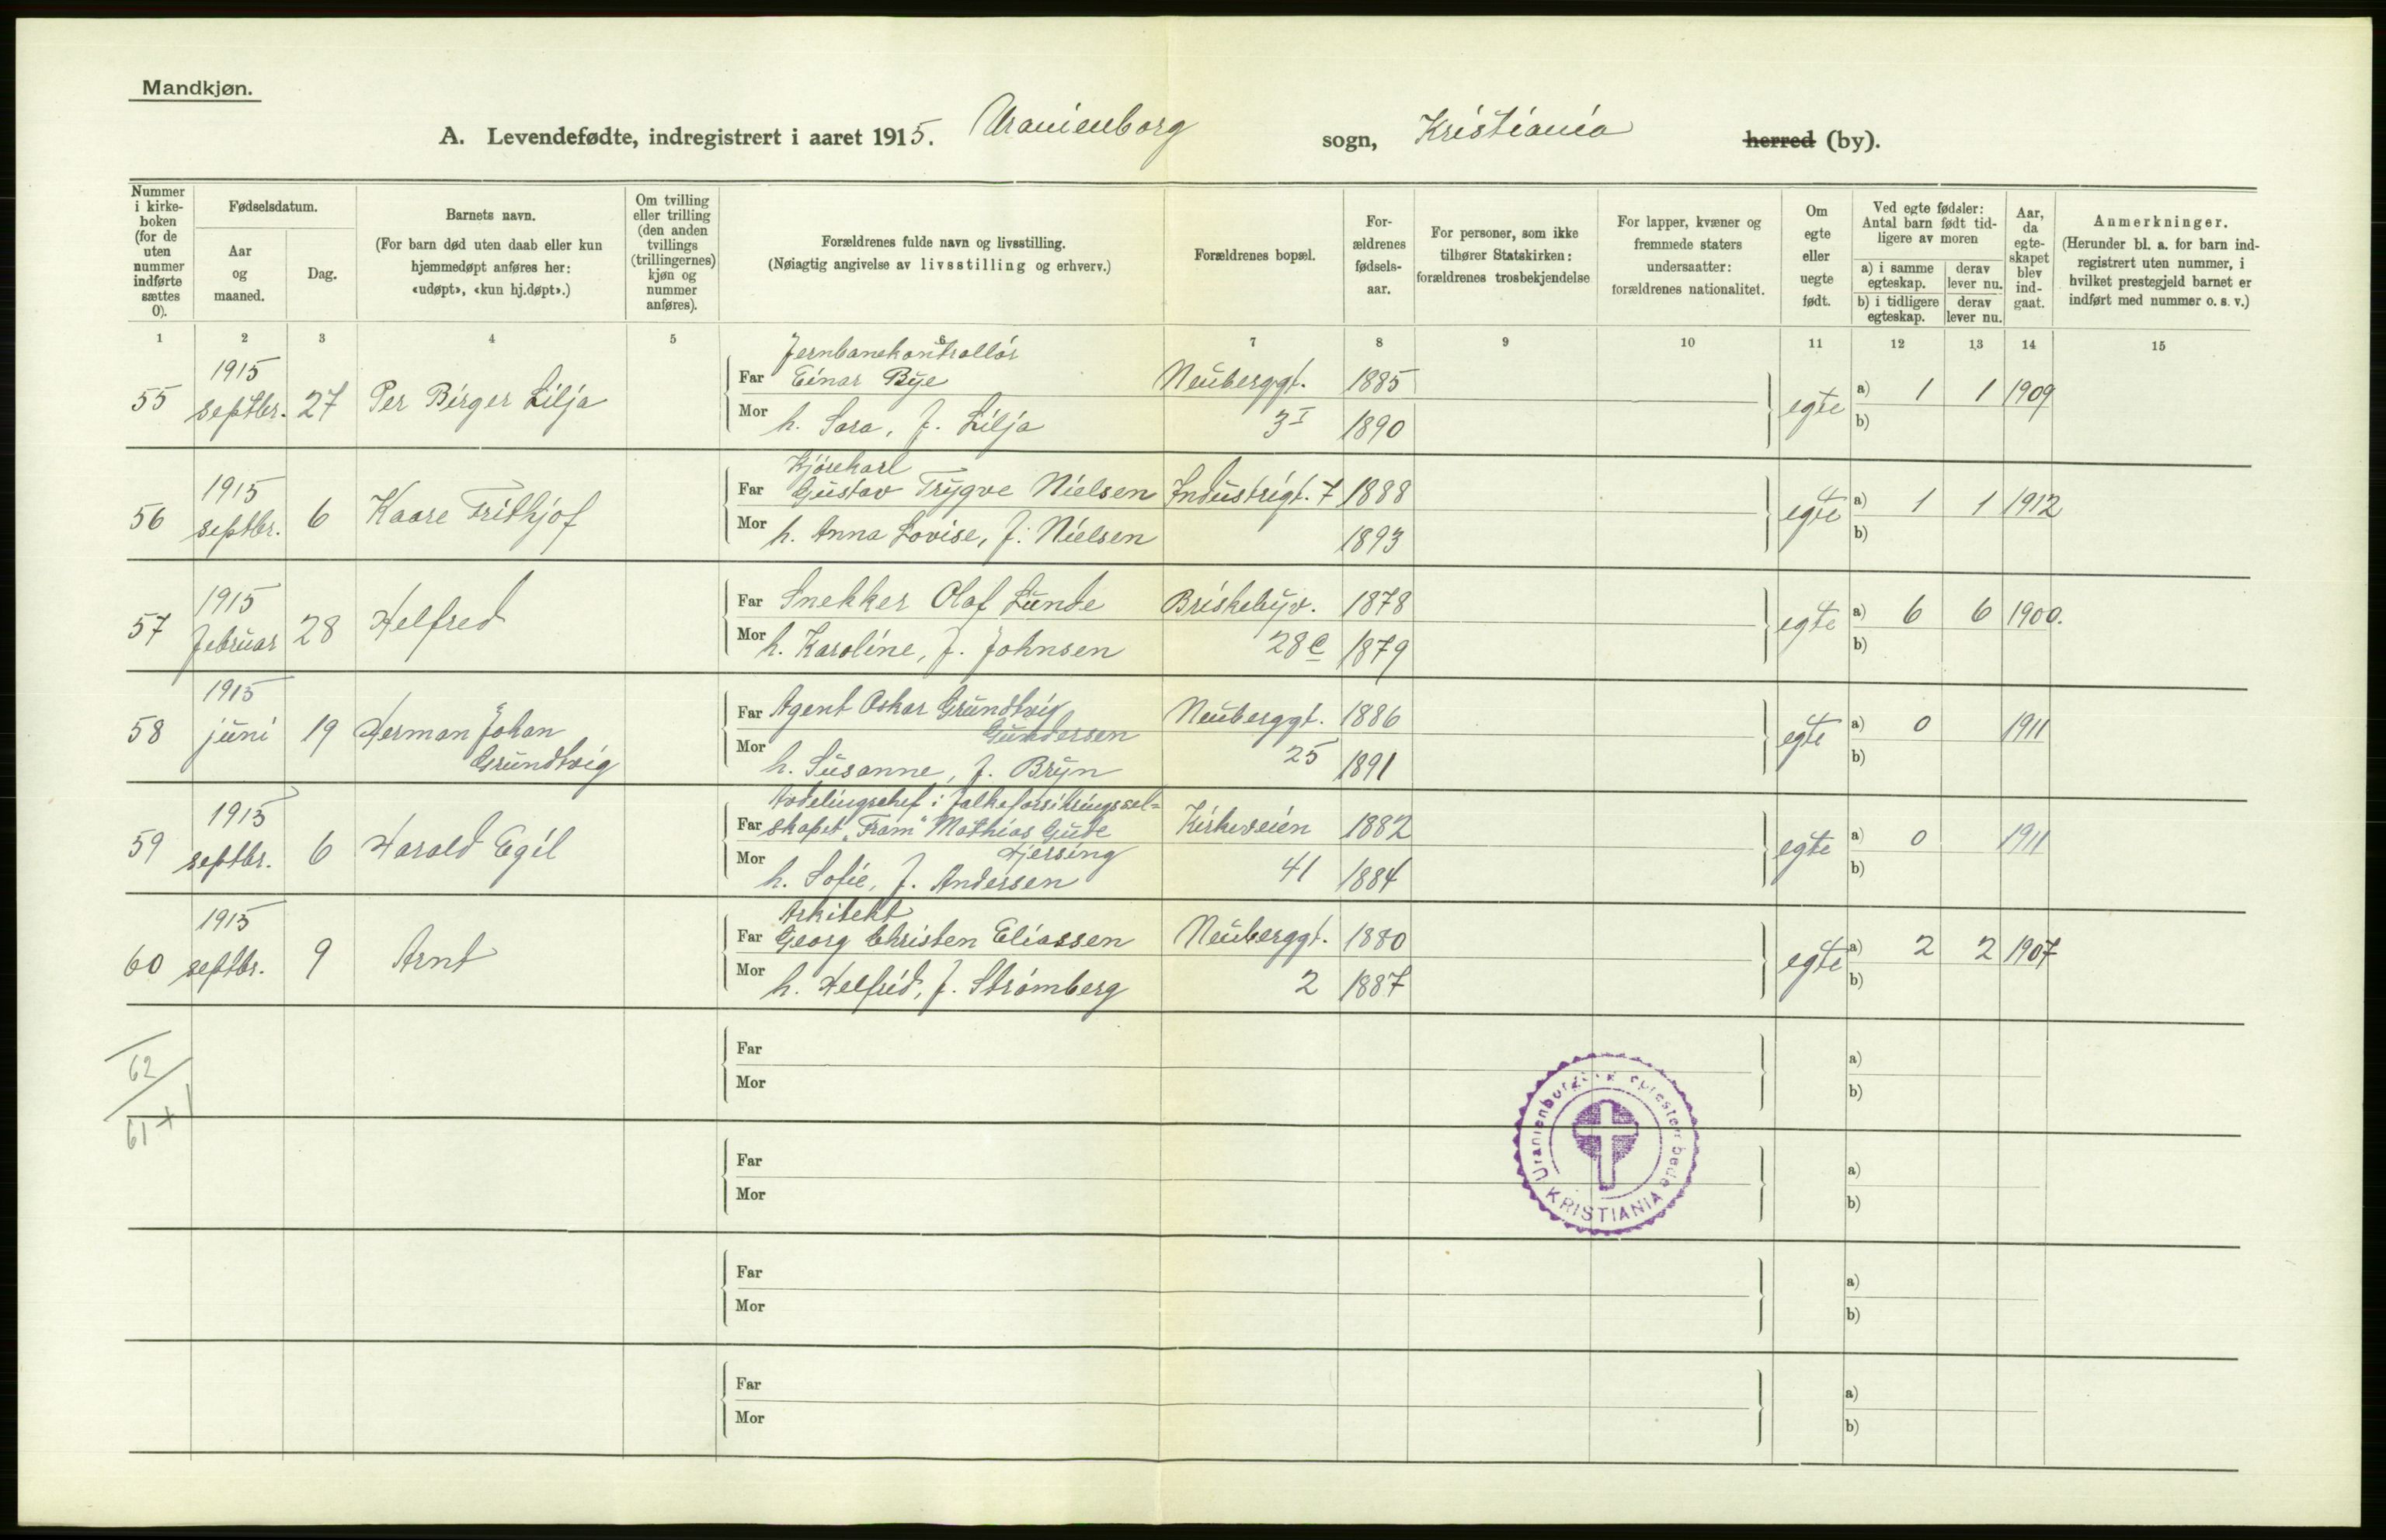 Mandkjøn.
A. Levendefødte, indregistrert i aaret 1915. Uranienborg sogn, Kristiania herred (by).
Nummer i kirke-boken (for de uten nummer indførte sættes 0).
Fødselsdatum.
Aar og maaned.
Dag.
Barnets navn.
(For barn død uten daab eller kun hjemmedøpt anføres her: «udøpt», «kun hj.døpt».)
Om tvilling eller trilling (den anden tvillings (trillingernes) kjøn og nummer anføres).
Forældrenes fulde navn og livsstilling.
(Nøiagtig angivelse av livsstilling og erhverv.)
Forældrenes bopæl.
For-ældrenes fødsels-aar.
For personer, som ikke tilhører Statskirken: forældrenes trosbekjendelse
For lapper, kvæner og fremmede staters undersaatter: forældrenes nationalitet.
Om egte eller uegte født.
Ved egte fødsler: Antal barn født tid-ligere av moren
a) i samme egteskap. derav lever nu.
b) i tidligere egteskap. derav lever nu.
Aar, da egte-skapet blev ind-gaat.
Anmerkninger.
(Herunder bl. a. for barn ind-registrert uten nummer, i hvilket prestegjeld barnet er indført med nummer o. s. v.)
1 2 3 4 5 6 7 8 9 10 11 12 13 14 15
Jernbanekontrollør
55 1915 septbr. 27 Per Birger Lilja Far Einar Bye Neuberggt. 1885 egte a) 1 1 1909
Mor h. Sara, f. Lilja 3 I 1890 b)
Kjørekarl
56 1915 septbr. 6 Kaare Frithjof Far Gustav Trygve Nielsen Industrigt. 7 1888 egte a) 1 1 1912
Mor h. Anna Lovise, f. Nielsen 1893 b)
57 1915 februar 28 Helfred Far Snekker Olaf Lunde Briskebyv. 1878 egte a) 6 6 1900.
Mor h. Karoline, f. Johnsen 28 c 1879 b)
58 1915 juni 19 Herman Johan Grundtvig Far Agent Oskar Grundtvig Gundersen Neuberggt. 1886 egte a) 0 1911
Mor h. Susanne, f. Bryn 25 1891 b)
Avdelingschef i Folkeforsikringssel=
59 1915 septbr. 6 Harald Egil Far skapet "Fram" Mathias Gude Hjersing Kirkeveien 1882 egte a) 0 1911
Mor h. Sofie, f. Andersen 41 1884 b)
Arkitekt
60 1915 septbr. 9 Arnt Far Georg Christen Eliassen Neuberggt. 1880 egte a) 2 2 1907
Mor h. Helfrid, f. Strømberg 2 1887 b)
Far a)
Mor b)
62
61+1
Far a)
Mor b)
Far a)
Mor b)
Far a)
Mor b)
KRISTIANIA